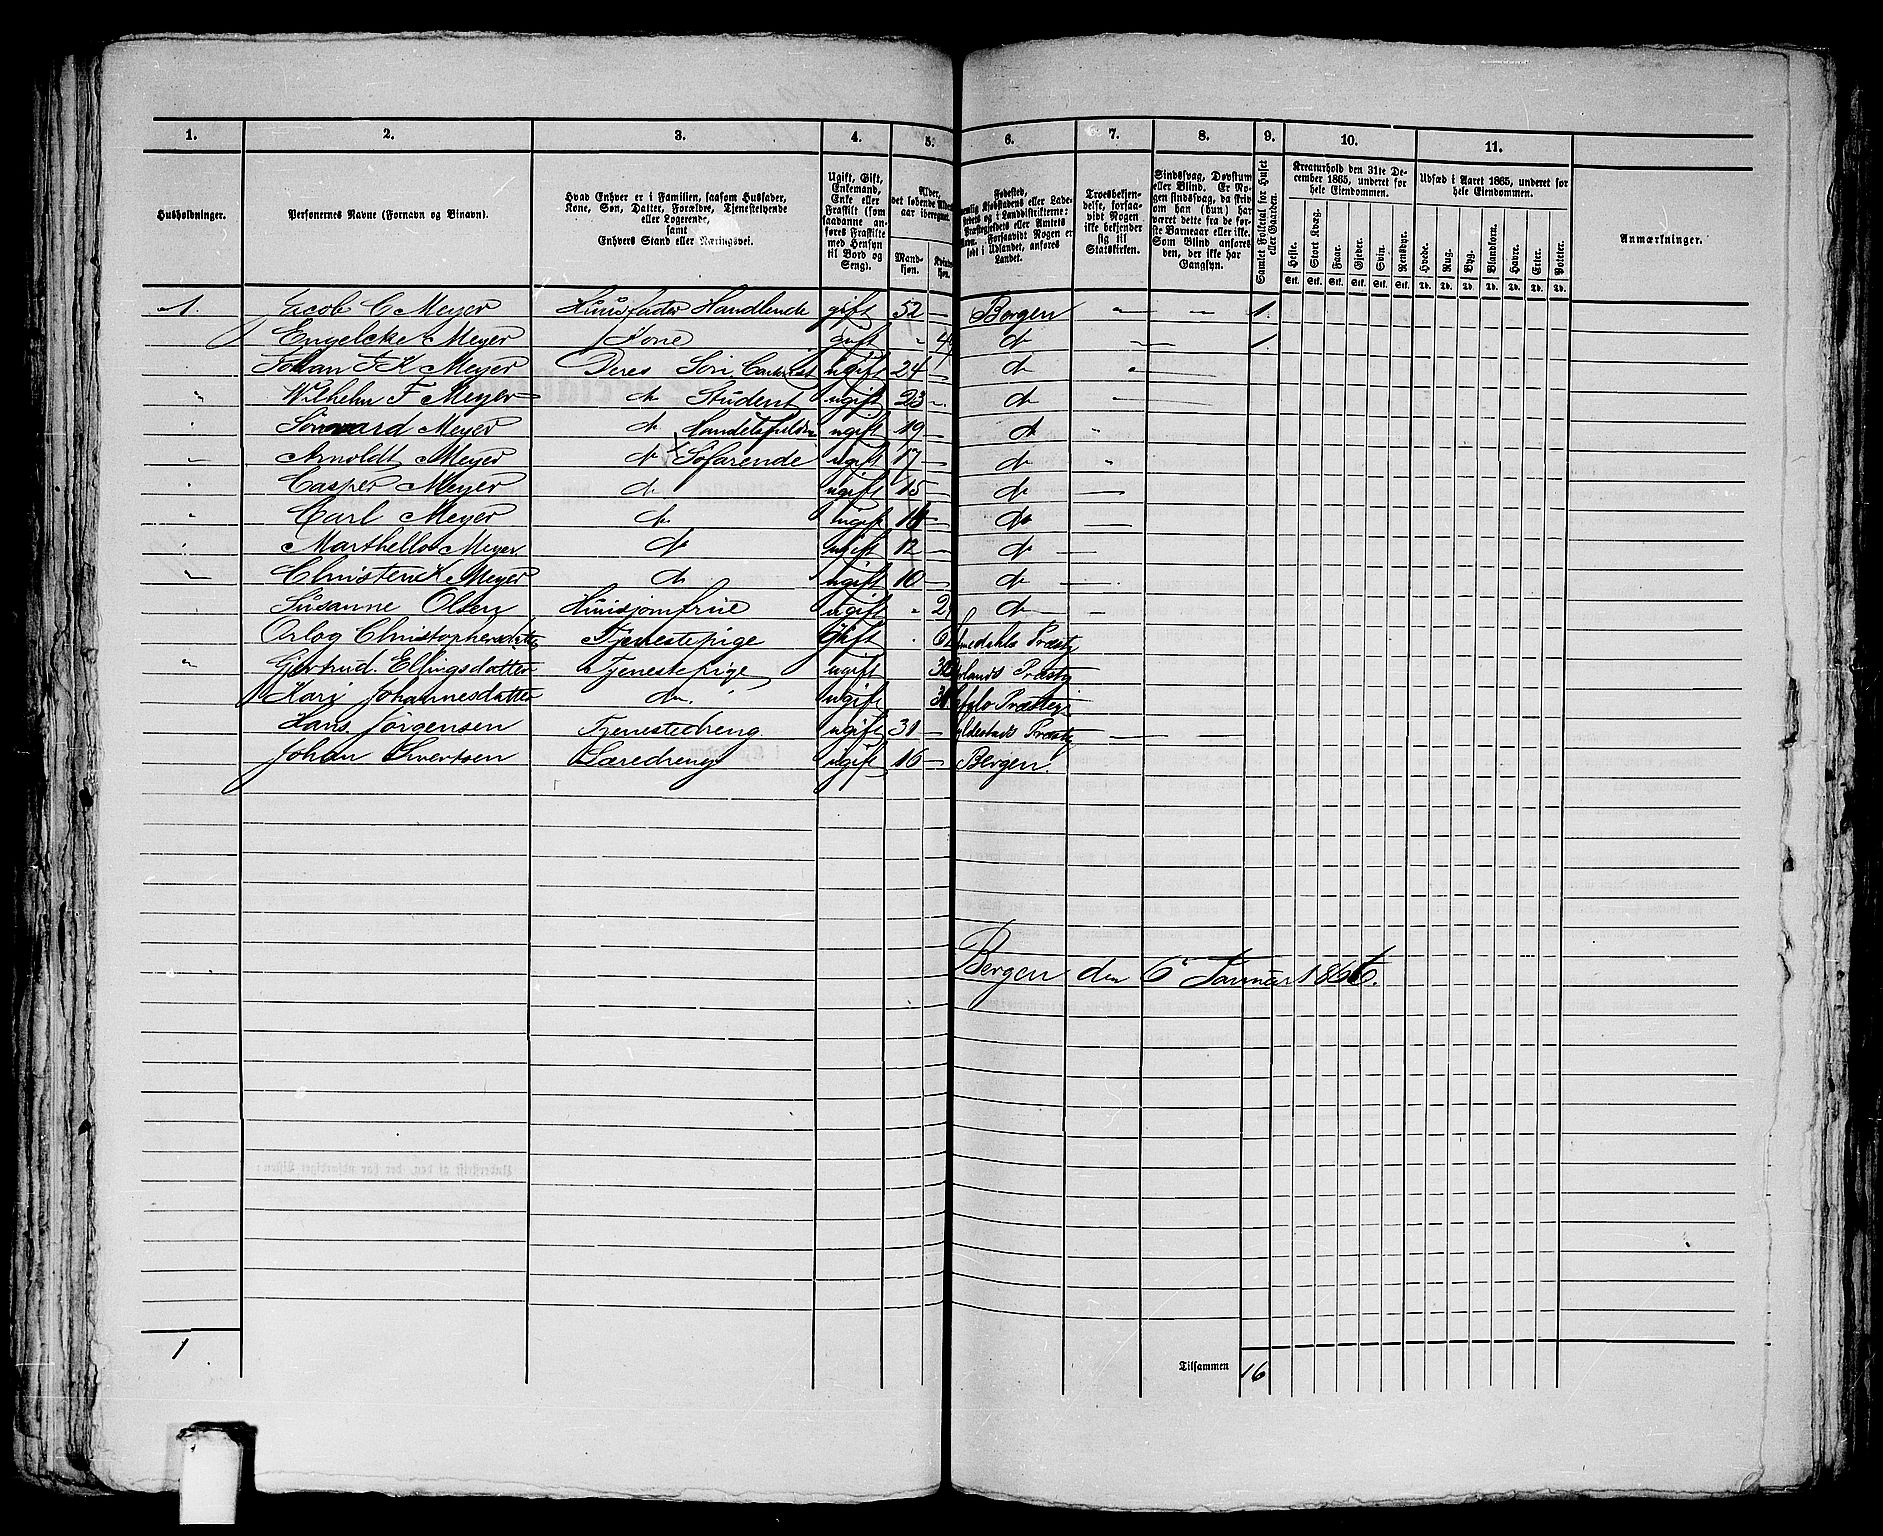 1. 2. 3. 4. 5. 6. 7. 8. 9. 10. 11.
Husholdninger.
Personernes Navne (Fornavn og Binavn).
Hvad Enhver er i Familien, saasom Husfader,
Kone, Søn, Datter, Forældre, Tjenestetyende
eller Logerende,
samt
Enhvers Stand eller Næringsvei.
Ugift, Gift,
Enkemand,
Enke eller
Fraskilt (som
saadanne an-
føres Fraskilte
med Hensyn
til Bord og
Seng).
Alder,
det løbende Alders-
aar iberegnet.
Mand-
kjøn.
Kvinde-
kjøn.
Fødested,
Kjøbstadens eller Lade-
stedets og i Landdistrikterne:
Præstegjeldets eller Amtets
Navn. Forsaavidt Nogen er
født i Udlandet, anføres
Landet.
Troesbekjen-
delse, forsaa-
vidt Nogen
ikke bekjender
sig til
Statskirken.
Sindssvag, Døvstum
eller Blind. Er No-
gen sindssvag, da skriv
om han (hun) har
været dette fra de før-
ste Barneaar eller ikke.
Som Blind anføres
den, der ikke har
Gangsyn.
Samlet Folketal for Huset
eller Gaarden.
Kreaturhold den 31te De-
cember 1865, underet for
hele Eiendommen.
Heste. Stort Kvæg. Faar. Gjeder. Svin. Rensdyr.
Stk. Stk. Stk. Stk. Stk. Stk.
Udsæd i Aaret 1865, underet for
hele Eiendommen.
Hvede. Rug. Byg. Blandkorn. Havre. Erter. Poteter.
Td. Td. Td. Td. Td. Td. Td.
Anmærkninger.
1. Jacob C Meyer Huusfader Handlende gift 52 Bergen 1.
Engelcke Meyer Kone gift do 1.
Johan F K Meyer Deres Søn ugift 24 do
Wilhelm F Meyer do Student ugift 23 do
Meyer do ugift 19 do
Arnoldt Meyer do Søfarende ugift 17 do
Casper Meyer do ugift 15 do
Carl Meyer do ugift 14 do
Meyer do ugift 12 do
Meyer do ugift 10 do
Susanne Olsen Huusjomfrue ugift do
Christophersdatter Tjenestepige Præstg
Gjertrud Ellingsdatter Tjenestepige ugift Præstg
Kari Johannesdatter do. ugift Præstg
Hans Jørgensen Tjenestedreng ugift 31 Præstg
Johan Sivertsen Læredreng ugift 16 Bergen.
Bergen den 6 Januar 1866.
1 Tilsammen 16